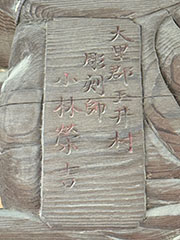 大里郡玉井村
彫刻師
小林榮吉